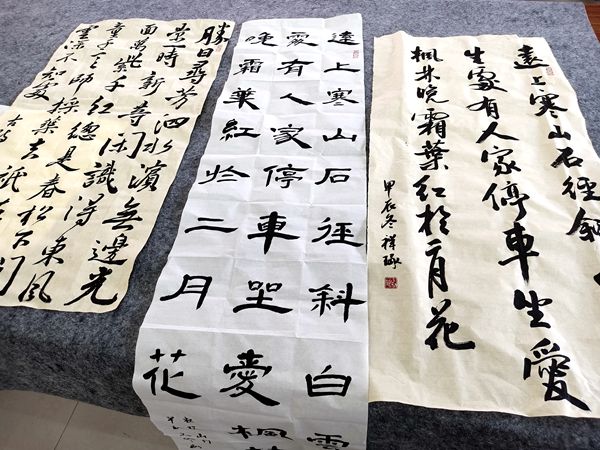 遠上寒山石徑斜
生處有人家停車坐愛
楓林晚霜葉紅於二月花
甲辰冬祥
遠上寒山石徑斜白雲
處有人家停車坐愛楓林
晚霜葉紅於二月花
勝日尋芳泗水濱無邊光
景一時新等閑識得東風
面萬紫千紅總是春松下問
童子言師採藥去祇在
雲深不知處